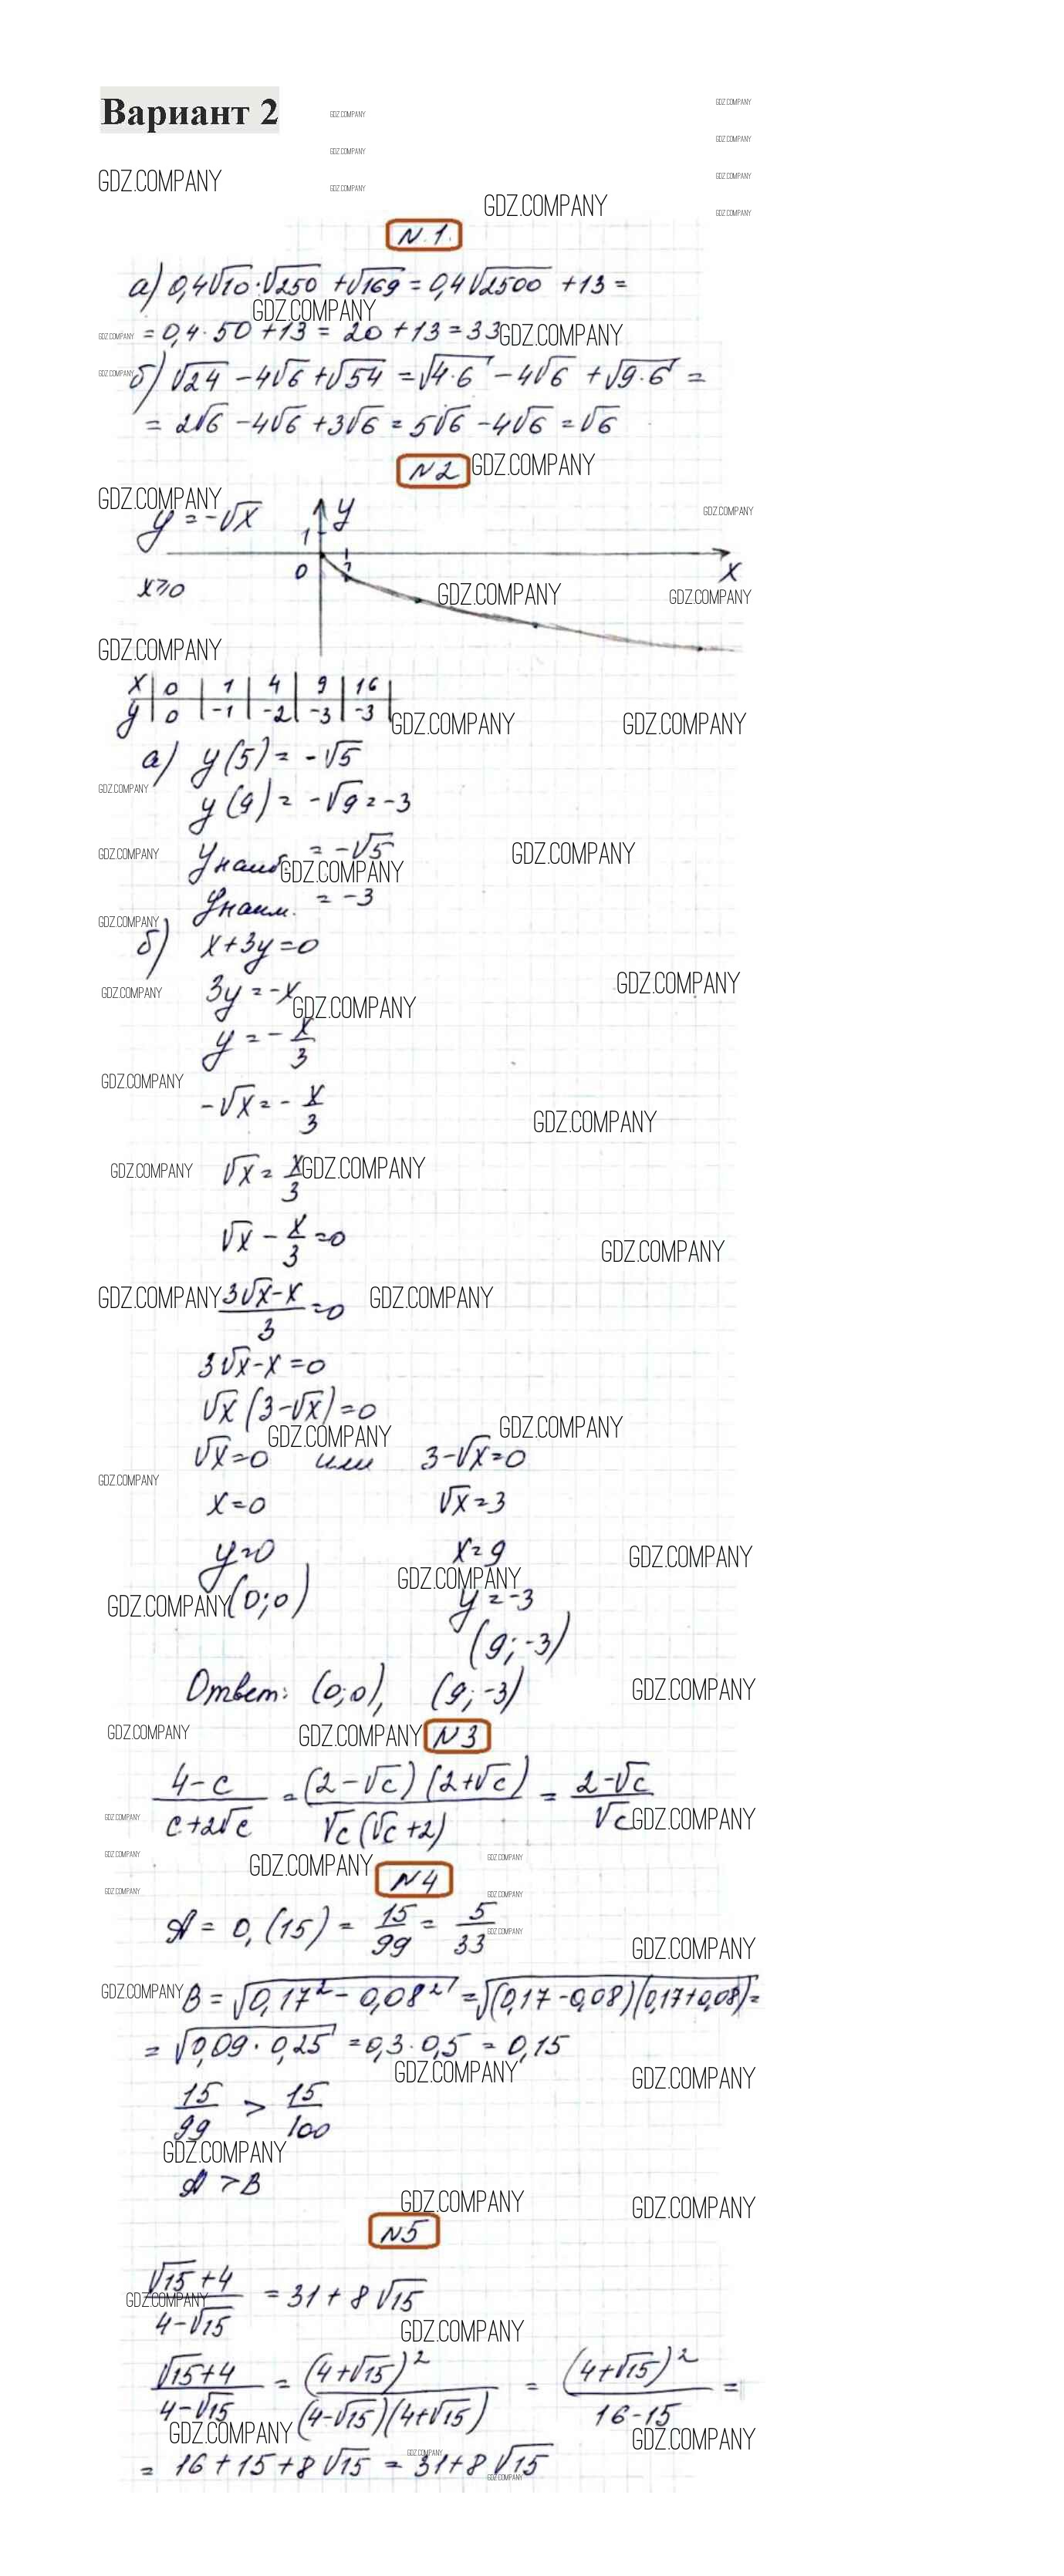 Вариант 2
GDZ.COMPANY
N.1.
а) 0,4√10·√250 +√169 = 0,4√2500 +13 =
= 0,4·50+13 = 20+13=33
б) √24 -4√6+√54 =√4·6 -4√6 +√9·6 =
= 2√6 -4√6+3√6 = 5√6 -4√6 =√6
N2
y=-√x
y
1
0
1
x
x≥0
x | 0 | 1 | 4 | 9 | 16 |
y | 0 | -1 | -2 | -3 | -3 |
а) y(5) = -√5
y(9) = -√9=-3
yнаиб. = -√5
yнаим. = -3
б) x+3y=0
3y=-x
y=-x/3
-√x=-x/3
√x=x/3
√x-x/3=0
(3√x-x)/3=0
3√x-x=0
√x(3-√x)=0
√x=0 или 3-√x=0
x=0 √x=3
y=0 x=9
(0;0) y=-3
(9;-3)
Ответ: (0;0), (9;-3)
N3
(4-c)/(c+2√c) = (2-√c)(2+√c)/(√c(√c+2)) = (2-√c)/√c
N4
A = 0,(15) = 15/99 = 5/33
B = √0,17²-0,08² =√(0,17-0,08)(0,17+0,08) =
= √0,09·0,25 =0,3·0,5 = 0,15
15/99 > 15/100
A > B
N5
(√15+4)/(4-√15) = 31+8√15
(√15+4)/(4-√15) = (4+√15)²/((4-√15)(4+√15)) = (4+√15)²/(16-15) =
= 16+15+8√15 = 31+8√15